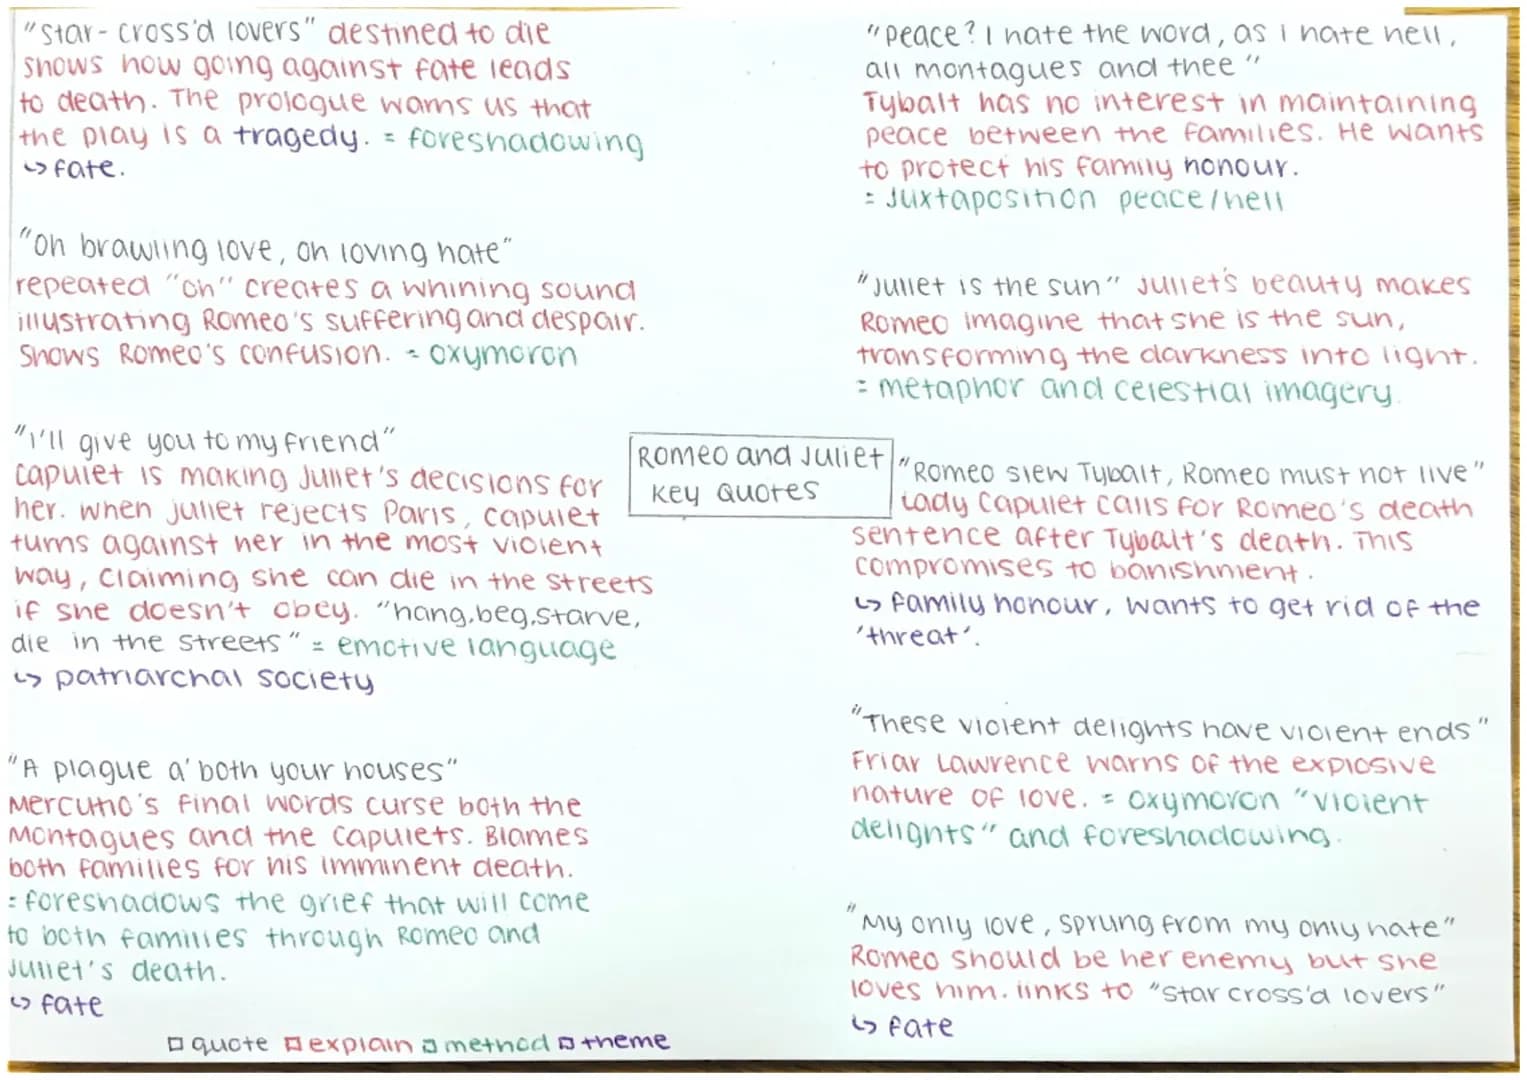 "Star-cross'd lovers" destined to die
shows how going against fate leads
to death. The prologue warns us that
the play is a tragedy. = foreshadowing
↳ fate.
"Oh brawling love, oh loving hate"
repeated "oh" creates a whining sound
illustrating Romeo's suffering and despair.
Shows Romeo's confusion. = oxymoron
"I'll give you to my friend"
Capulet is making Juliet's decisions for
her. When Juliet rejects Paris, Capulet
turns against her in the most violent
way, claiming she can die in the streets
if she doesn't obey. "hang, beg, starve,
die in the streets" = emotive language
↳ patriarchal society
"A plague a' both your houses"
Mercutio's final words curse both the
Montagues and the Capulets. Blames
both families for his imminent death.
= foreshadows the grief that will come
to both families through Romeo and
Juliet's death.
↳ fate
□ quote □ explain □ method □ theme
Romeo and Juliet
Key Quotes
"Peace? I hate the word, as I hate hell,
all montagues and thee"
Tybalt has no interest in maintaining
peace between the families. He wants
to protect his family honour.
= Juxtaposition peace/hell
"Juliet is the sun" Juliet's beauty makes
Romeo imagine that she is the sun,
transforming the darkness into light.
= metaphor and celestial imagery.
"Romeo slew Tybalt, Romeo must not live"
Lady Capulet calls for Romeo's death
sentence after Tybalt's death. This
compromises to banishment.
↳ family honour, wants to get rid of the
'threat'.
"These violent delights have violent ends"
Friar Lawrence warns of the explosive
nature of love. = oxymoron "violent
delights" and foreshadowing.
"My only love, sprung from my only hate"
Romeo should be her enemy but she
loves him. links to "star cross'd lovers"
↳ fate